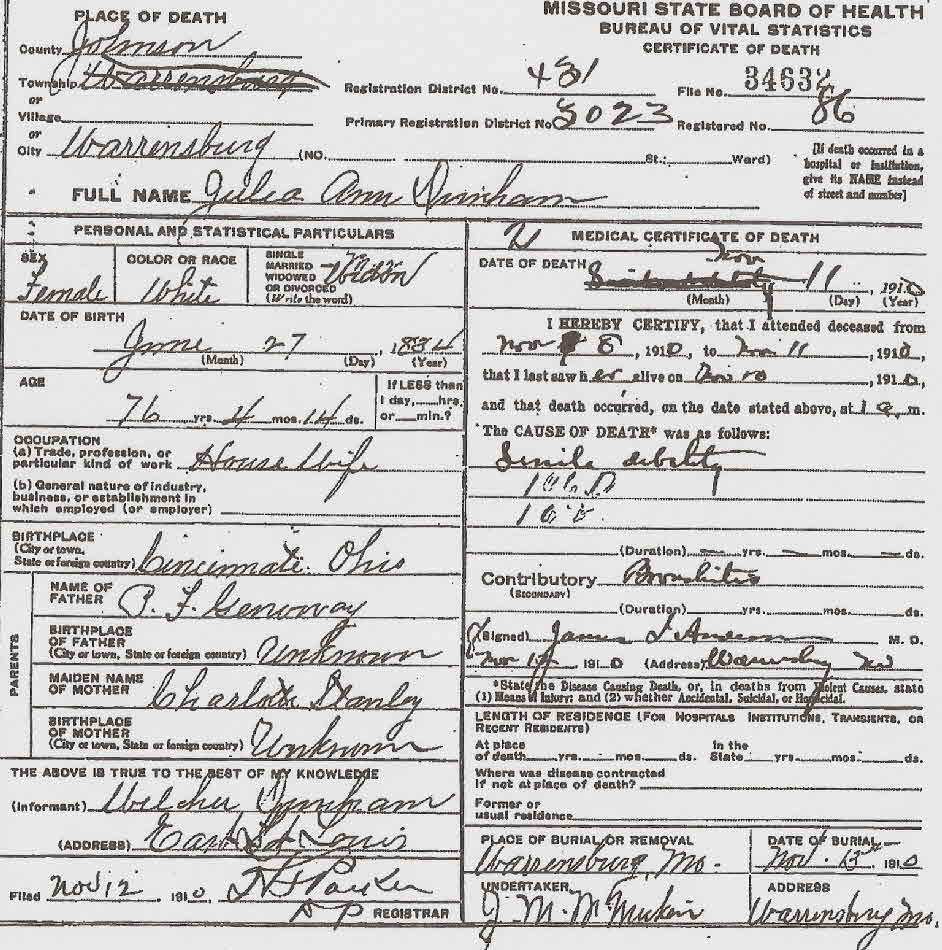 MISSOURI STATE BOARD OF HEALTH
BUREAU OF VITAL STATISTICS
CERTIFICATE OF DEATH
PLACE OF DEATH
County Johnson
Township Warrensburg
or
Village
or
City Warrensburg (NO. St.; Ward)
Registration District No. 431
File No. 34632
Primary Registration District No. 3023
Registered No. 86
[If death occurred in a
hospital or institution,
give its NAME instead
of street and number]
FULL NAME Julia Ann
PERSONAL AND STATISTICAL PARTICULARS
SEX
Female
COLOR OR RACE
White
SINGLE
MARRIED
WIDOWED
OR DIVORCED
(Write the word)
DATE OF BIRTH
June 27, 1834
(Month) (Day) (Year)
AGE
76 yrs. 4 mos. 14 ds.
If LESS than
1 day, hrs.
or min.?
OCCUPATION
(a) Trade, profession, or
particular kind of work House Wife
(b) General nature of industry,
business, or establishment in
which employed (or employer)
BIRTHPLACE
(City or town,
State or foreign country) Cincinnati Ohio
PARENTS
NAME OF
FATHER P. F. Genoway
BIRTHPLACE
OF FATHER
(City or town, State or foreign country) Unknown
MAIDEN NAME
OF MOTHER Charlotte Stanley
BIRTHPLACE
OF MOTHER
(City or town, State or foreign country) Unknown
THE ABOVE IS TRUE TO THE BEST OF MY KNOWLEDGE
(Informant)
(ADDRESS) East St Louis
Filed Nov 12 1910 Parker
REGISTRAR
2 MEDICAL CERTIFICATE OF DEATH
DATE OF DEATH Nov 11, 1910
(Month) (Day) (Year)
I HEREBY CERTIFY, that I attended deceased from
Nov 8, 1910, to Nov 11, 1910,
that I last saw her alive on Nov 10, 1910,
and that death occurred, on the date stated above, at 1 a.m.
The CAUSE OF DEATH* was as follows:
Senile debility
(Duration) yrs. mos. ds.
Contributory Bronchitis
(SECONDARY)
(Duration) yrs. mos. ds.
(Signed) James M. D.
Nov 1910 (Address) Warrensburg Mo
*State the Disease Causing Death, or, in deaths from Violent Causes, state
(1) Means of Injury; and (2) whether Accidental, Suicidal, or Homicidal.
LENGTH OF RESIDENCE (FOR HOSPITALS INSTITUTIONS, TRANSIENTS, OR
RECENT RESIDENTS)
At place
of death yrs. mos. ds.
In the
State yrs. mos. ds.
Where was disease contracted
if not at place of death?
Former or
usual residence
PLACE OF BURIAL OR REMOVAL
Warrensburg, Mo.
DATE OF BURIAL
Nov. 13 1910
UNDERTAKER
J. M.
ADDRESS
Warrensburg Mo.